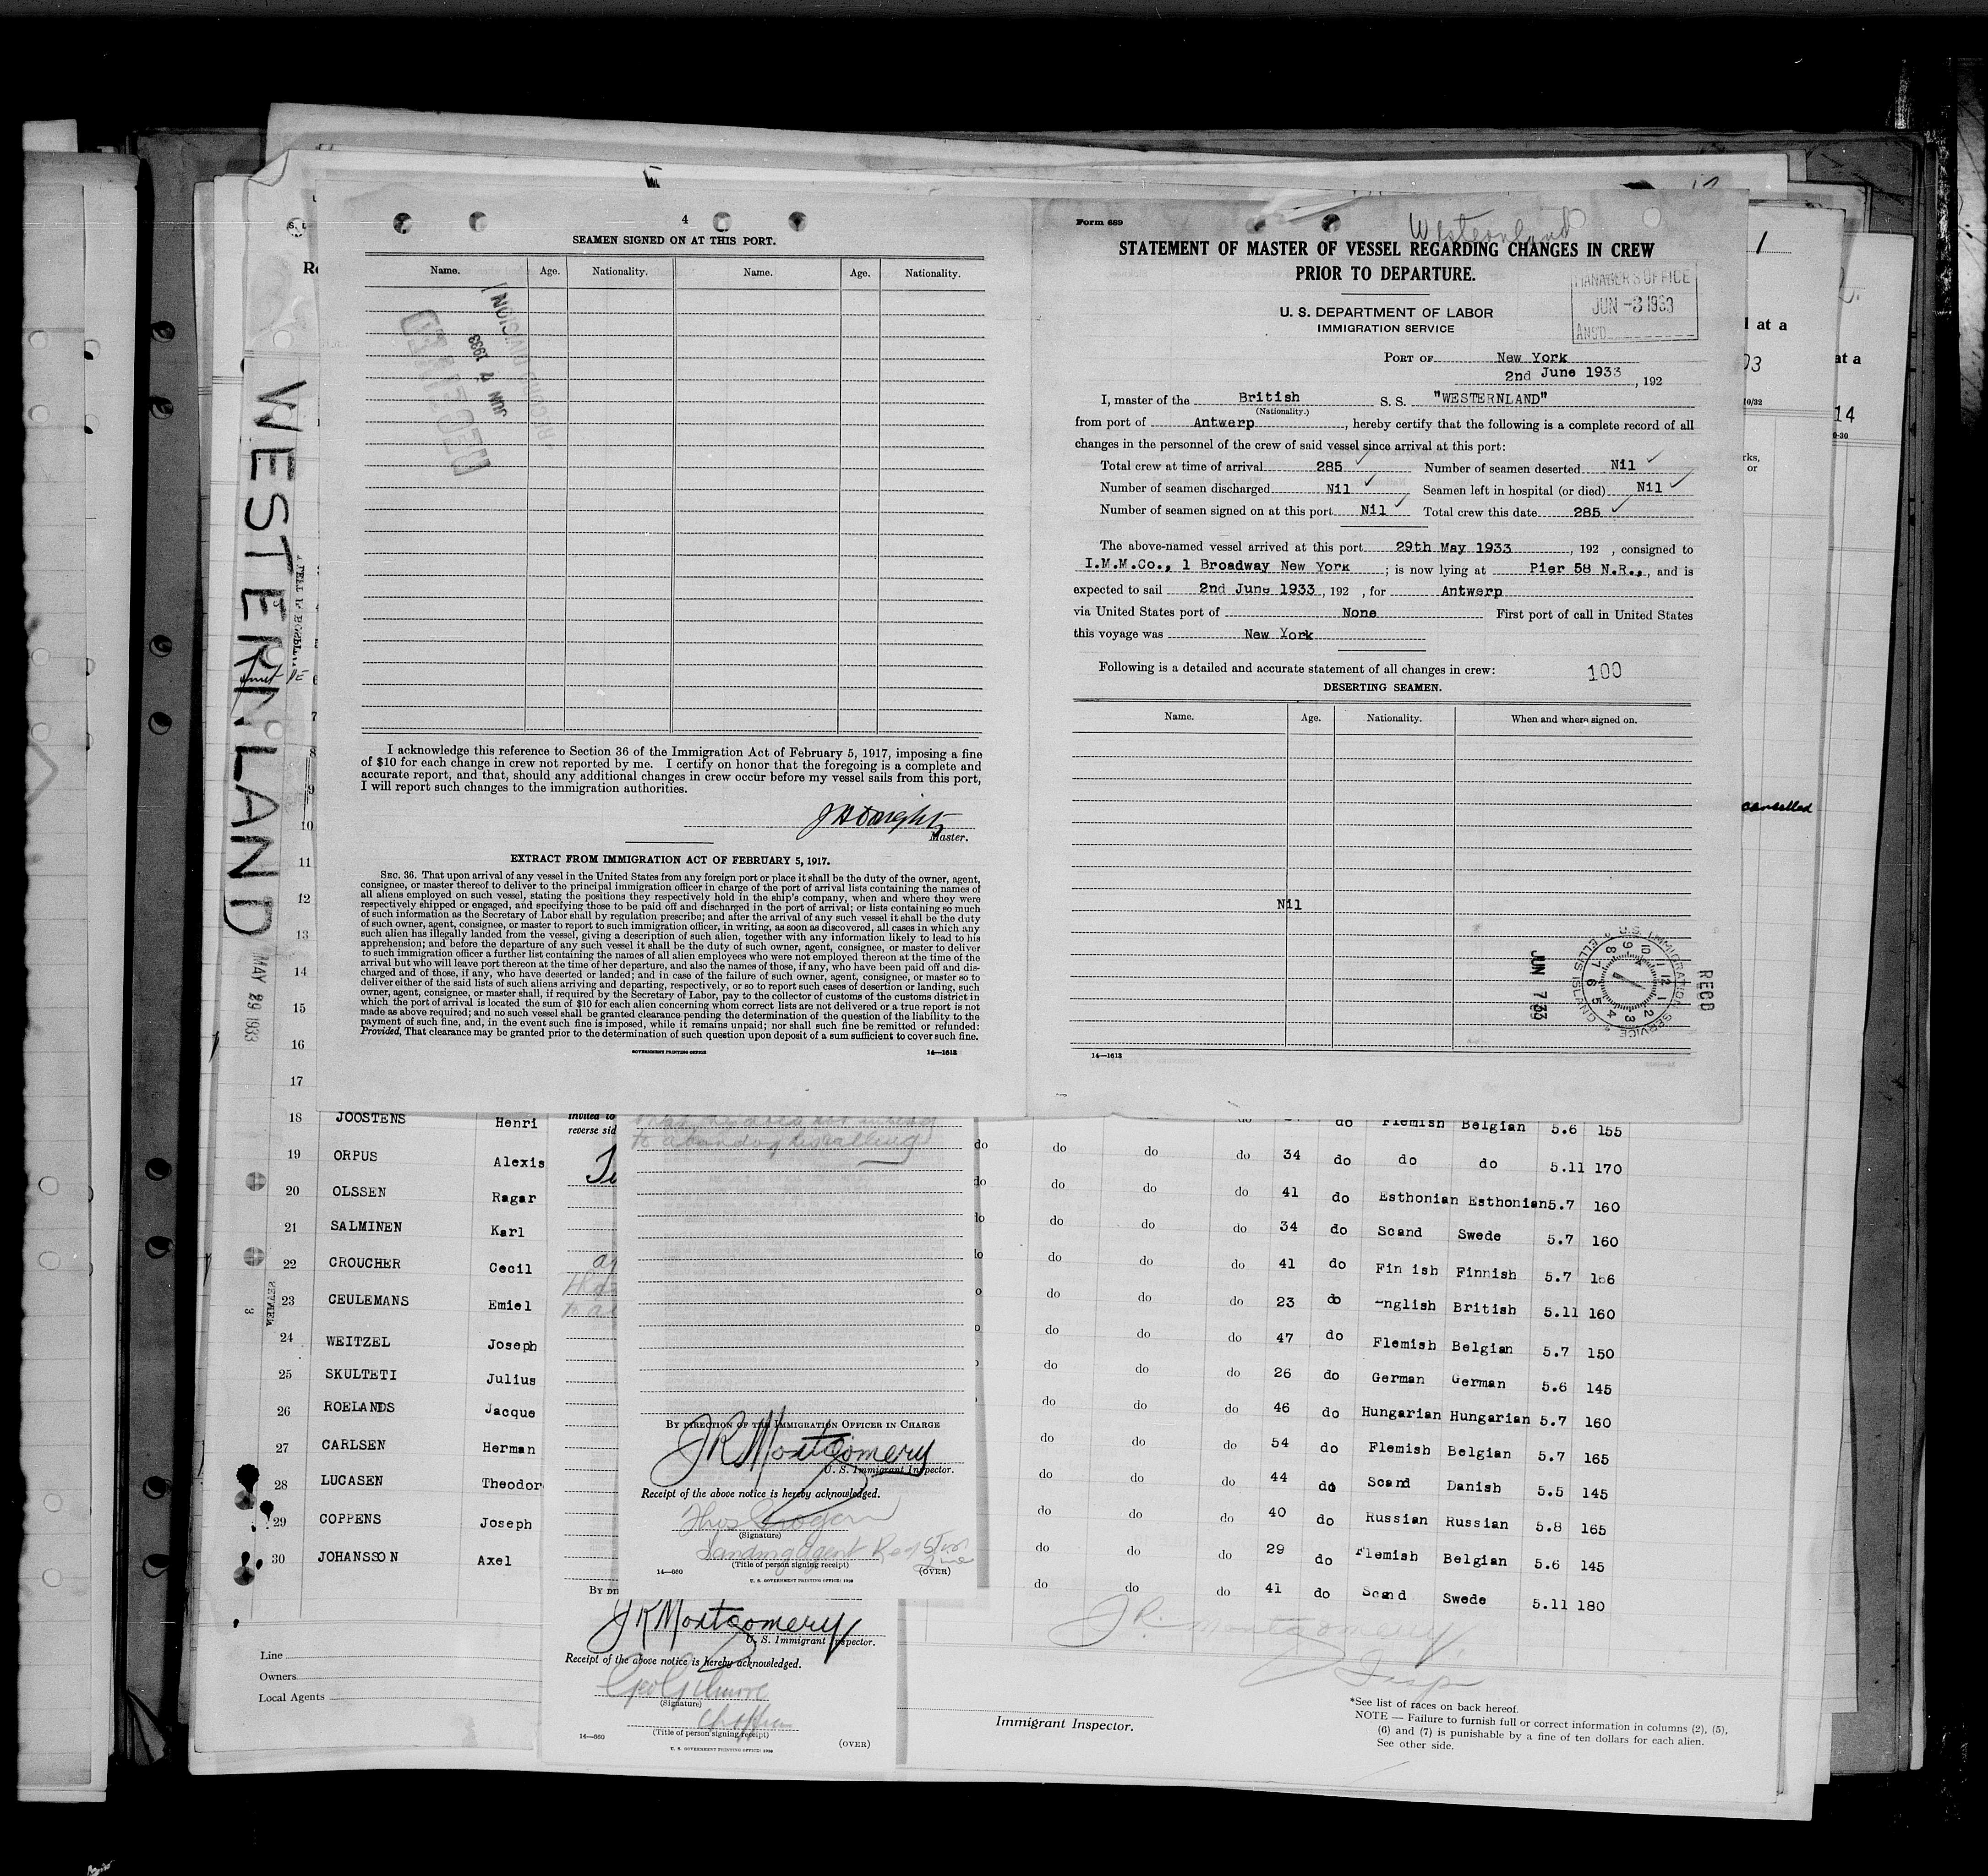 4
SEAMEN SIGNED ON AT THIS PORT.
Name. Age. Nationality. Name. Age. Nationality.
RECEIVED
JUN 7 1933
RECORD DIVISION
I acknowledge this reference to Section 36 of the Immigration Act of February 5, 1917, imposing a fine
of $10 for each change in crew not reported by me. I certify on honor that the foregoing is a complete and
accurate report, and that, should any additional changes in crew occur before my vessel sails from this port,
I will report such changes to the immigration authorities.
Master.
EXTRACT FROM IMMIGRATION ACT OF FEBRUARY 5, 1917.
SEC. 36. That upon arrival of any vessel in the United States from any foreign port or place it shall be the duty of the owner, agent,
consignee, or master thereof to deliver to the principal immigration officer in charge of the port of arrival lists containing the names of
all aliens employed on such vessel, stating the positions they respectively hold in the ship's company, when and where they were
respectively shipped or engaged, and specifying those to be paid off and discharged in the port of arrival; or lists containing so much
of such information as the Secretary of Labor shall by regulation prescribe; and after the arrival of any such vessel it shall be the duty
of such owner, agent, consignee, or master to report to such immigration officer, in writing, as soon as discovered, all cases in which any
such alien has illegally landed from the vessel, giving a description of such alien, together with any information likely to lead to his
apprehension; and before the departure of any such vessel it shall be the duty of such owner, agent, consignee, or master to deliver
to such immigration officer a further list containing the names of all alien employees who were not employed thereon at the time of the
arrival but who will leave port thereon at the time of her departure, and also the names of those, if any, who have been paid off and dis-
charged and of those, if any, who have deserted or landed; and in case of the failure of such owner, agent, consignee, or master so to
deliver either of the said lists of such aliens arriving and departing, respectively, or so to report such cases of desertion or landing, such
owner, agent, consignee, or master shall, if required by the Secretary of Labor, pay to the collector of customs of the customs district in
which the port of arrival is located the sum of $10 for each alien concerning whom correct lists are not delivered or a true report is not
made as above required; and no such vessel shall be granted clearance pending the determination of the question of the liability to the
payment of such fine, and, in the event such fine is imposed, while it remains unpaid; nor shall such fine be remitted or refunded:
Provided, That clearance may be granted prior to the determination of such question upon deposit of a sum sufficient to cover such fine.
GOVERNMENT PRINTING OFFICE 14—1613
Form 689
Westernland
STATEMENT OF MASTER OF VESSEL REGARDING CHANGES IN CREW
PRIOR TO DEPARTURE.
MANAGER'S OFFICE
JUN -3 1933
ANS'D
U. S. DEPARTMENT OF LABOR
IMMIGRATION SERVICE
PORT OF New York
2nd June 1933, 192
I, master of the British S. S. "WESTERNLAND"
(Nationality.)
from port of Antwerp, hereby certify that the following is a complete record of all
changes in the personnel of the crew of said vessel since arrival at this port:
Total crew at time of arrival 285 Number of seamen deserted Nil
Number of seamen discharged Nil Seamen left in hospital (or died) Nil
Number of seamen signed on at this port Nil Total crew this date 285
The above-named vessel arrived at this port 29th May 1933, 192 , consigned to
I.M.M.Co., 1 Broadway New York ; is now lying at Pier 58 N.R., and is
expected to sail 2nd June 1933, 192 , for Antwerp
via United States port of None First port of call in United States
this voyage was New York
Following is a detailed and accurate statement of all changes in crew: 100
DESERTING SEAMEN.
Name. Age. Nationality. When and where signed on.
Nil
U.S. IMMIGRATION SERVICE ELLIS ISLAND
RECD
JUN 7
14—1613
WESTERNLAND
MAY 29 1933
1
l at a
at a
14
cancelled
7
8
9
10
11
12
13
14
15
16
17
18 JOOSTENS Henri do Flemish Belgian 5.6 155
19 ORPUS Alexis do do do do 34 do do do 5.11 170
20 OLSSEN Ragar do do do 41 do Esthonian Esthonian 5.7 160
21 SALMINEN Karl do do do 34 do Scand Swede 5.7 160
22 CROUCHER Cecil do do do 41 do Fin ish Finnish 5.7 166
23 CEULEMANS Emiel do do do 23 do -nglish British 5.11 160
24 WEITZEL Joseph do do do 47 do Flemish Belgian 5.7 150
25 SKULTETI Julius do do do 26 do German German 5.6 145
26 ROELANDS Jacque do do do 46 do Hungarian Hungarian 5.7 160
27 CARLSEN Herman do do do 54 do Flemish Belgian 5.7 165
28 LUCASEN Theodor do do do 44 do Scand Danish 5.5 145
29 COPPENS Joseph do do do 40 do Russian Russian 5.8 165
30 JOHANSSON Axel do do do 29 do Flemish Belgian 5.6 145
do do do 41 do Scand Swede 5.11 180
Line
Owners
Local Agents
invited to
reverse sid
to abandon his calling
BY DIRECTION OF THE IMMIGRATION OFFICER IN CHARGE
JR Montgomery
U. S. Immigrant Inspector.
Receipt of the above notice is hereby acknowledged.
(Signature)
Landing Agent Red Star Line
(Title of person signing receipt)
14—660 (OVER)
U. S. GOVERNMENT PRINTING OFFICE: 1930
BY DI
JR Montgomery
U. S. Immigrant Inspector.
Receipt of the above notice is hereby acknowledged.
Geo Gilmore
(Signature)
(Title of person signing receipt)
14—660 (OVER)
U. S. GOVERNMENT PRINTING OFFICE: 1930
J R. Montgomery
Insp
Immigrant Inspector.
*See list of races on back hereof.
NOTE — Failure to furnish full or correct information in columns (2), (5),
(6) and (7) is punishable by a fine of ten dollars for each alien.
See other side.